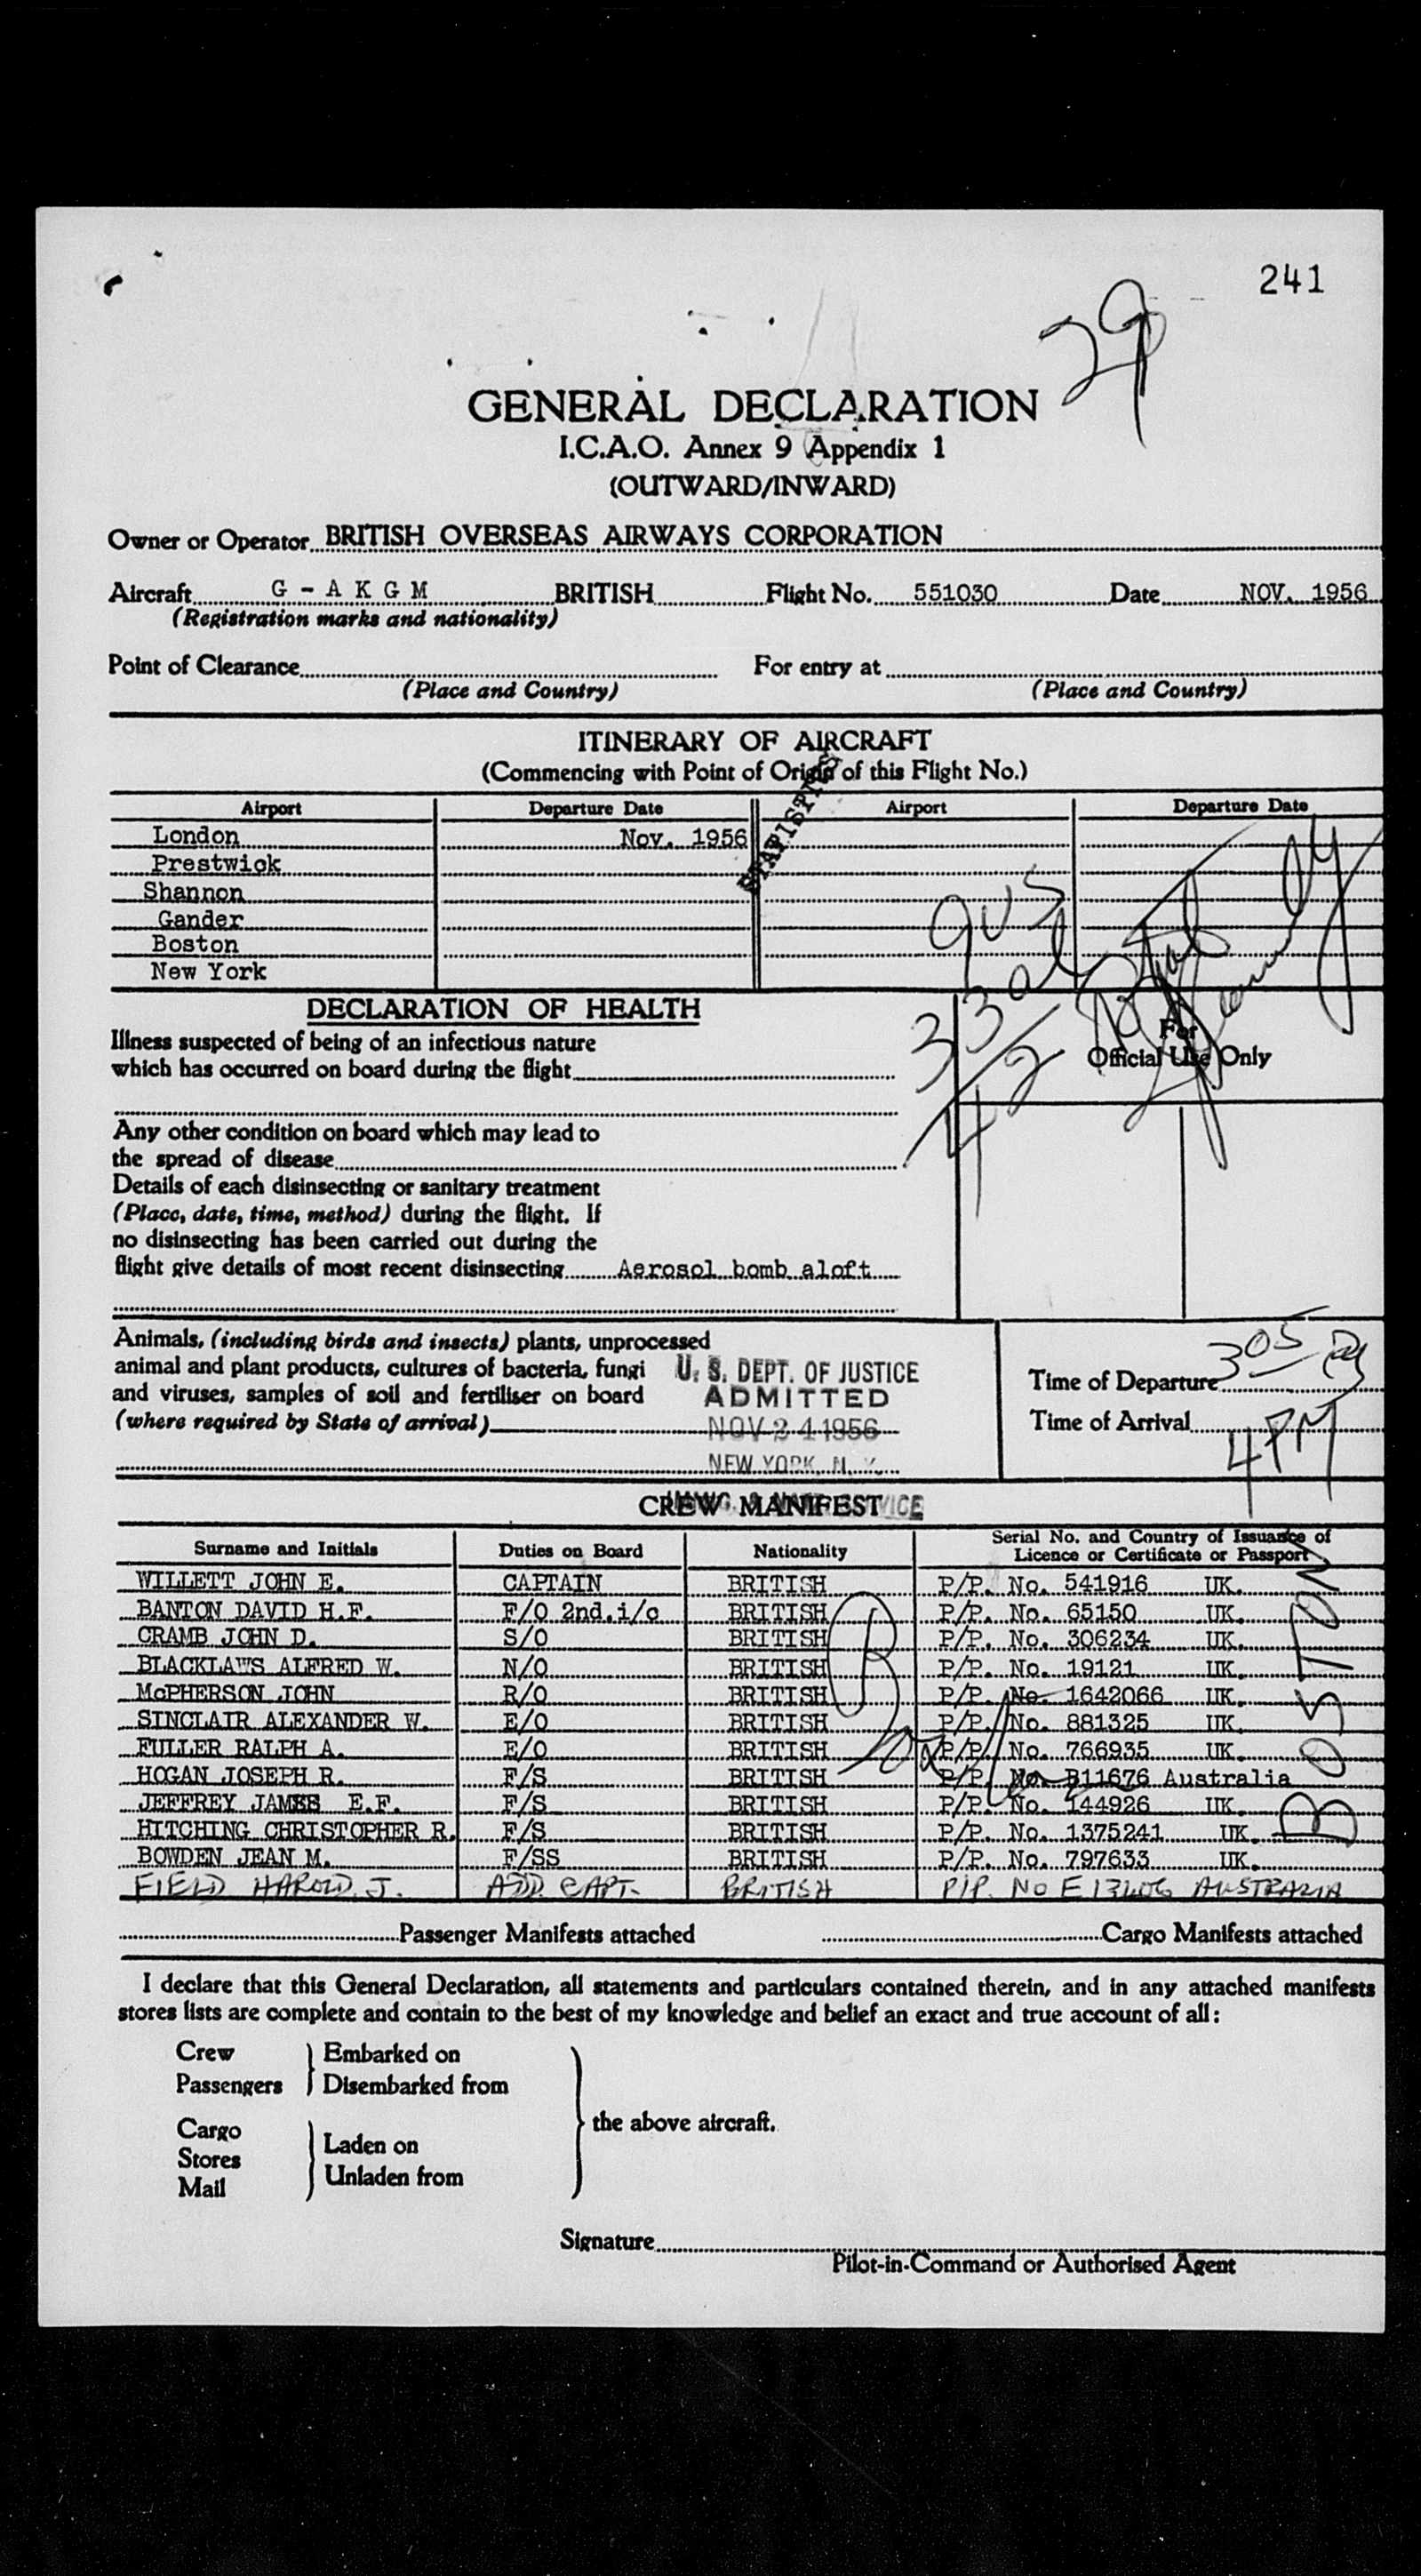 241
29
GENERAL DECLARATION
I.C.A.O. Annex 9 Appendix 1
(OUTWARD/INWARD)
Owner or Operator BRITISH OVERSEAS AIRWAYS CORPORATION
Aircraft G - A K G M BRITISH Flight No. 551030 Date NOV. 1956
(Registration marks and nationality)
Point of Clearance For entry at
(Place and Country) (Place and Country)
ITINERARY OF AIRCRAFT
(Commencing with Point of Origin of this Flight No.)
STATISTICS
Airport Departure Date Airport Departure Date
London Nov. 1956
Prestwick
Shannon
Gander
Boston
New York
9 US
33 al
42 Total
DECLARATION OF HEALTH
Illness suspected of being of an infectious nature
which has occurred on board during the flight
For
Official Use Only
Any other condition on board which may lead to
the spread of disease
Details of each disinsecting or sanitary treatment
(Place, date, time, method) during the flight. If
no disinsecting has been carried out during the
flight give details of most recent disinsecting Aerosol bomb aloft
Animals, (including birds and insects) plants, unprocessed
animal and plant products, cultures of bacteria, fungi
and viruses, samples of soil and fertiliser on board
(where required by State of arrival)
U. S. DEPT. OF JUSTICE
ADMITTED
NOV 24 1956
NEW YORK, N. Y.
Time of Departure 305
Time of Arrival 4 PM
CREW MANIFEST
Surname and Initials Duties on Board Nationality Serial No. and Country of Issuance of
Licence or Certificate or Passport
WILLETT JOHN E. CAPTAIN BRITISH P/P. No. 541916 UK.
BANTON DAVID H.F. F/O 2nd.i/c BRITISH P/P. No. 65150 UK.
CRAMB JOHN D. S/O BRITISH P/P. No. 306234 UK.
BLACKLAWS ALFRED W. N/O BRITISH P/P. No. 19121 UK.
McPHERSON JOHN R/O BRITISH P/P. No. 1642066 UK.
SINCLAIR ALEXANDER W. E/O BRITISH P/P. No. 881325 UK.
FULLER RALPH A. E/O BRITISH P/P. No. 766935 UK.
HOGAN JOSEPH R. F/S BRITISH P/P. No. B11676 Australia
JEFFREY JAMES E.F. F/S BRITISH P/P. No. 144926 UK.
HITCHING CHRISTOPHER R. F/S BRITISH P/P. No. 1375241 UK.
BOWDEN JEAN M. F/SS BRITISH P/P. No. 797633 UK.
FIELD HAROLD J. ADD CAPT. BRITISH P/P. No E AUSTRALIA
BOSTON
Passenger Manifests attached Cargo Manifests attached
I declare that this General Declaration, all statements and particulars contained therein, and in any attached manifests
stores lists are complete and contain to the best of my knowledge and belief an exact and true account of all:
Crew Embarked on
Passengers Disembarked from
the above aircraft.
Cargo
Stores Laden on
Mail Unladen from
Signature
Pilot-in-Command or Authorised Agent